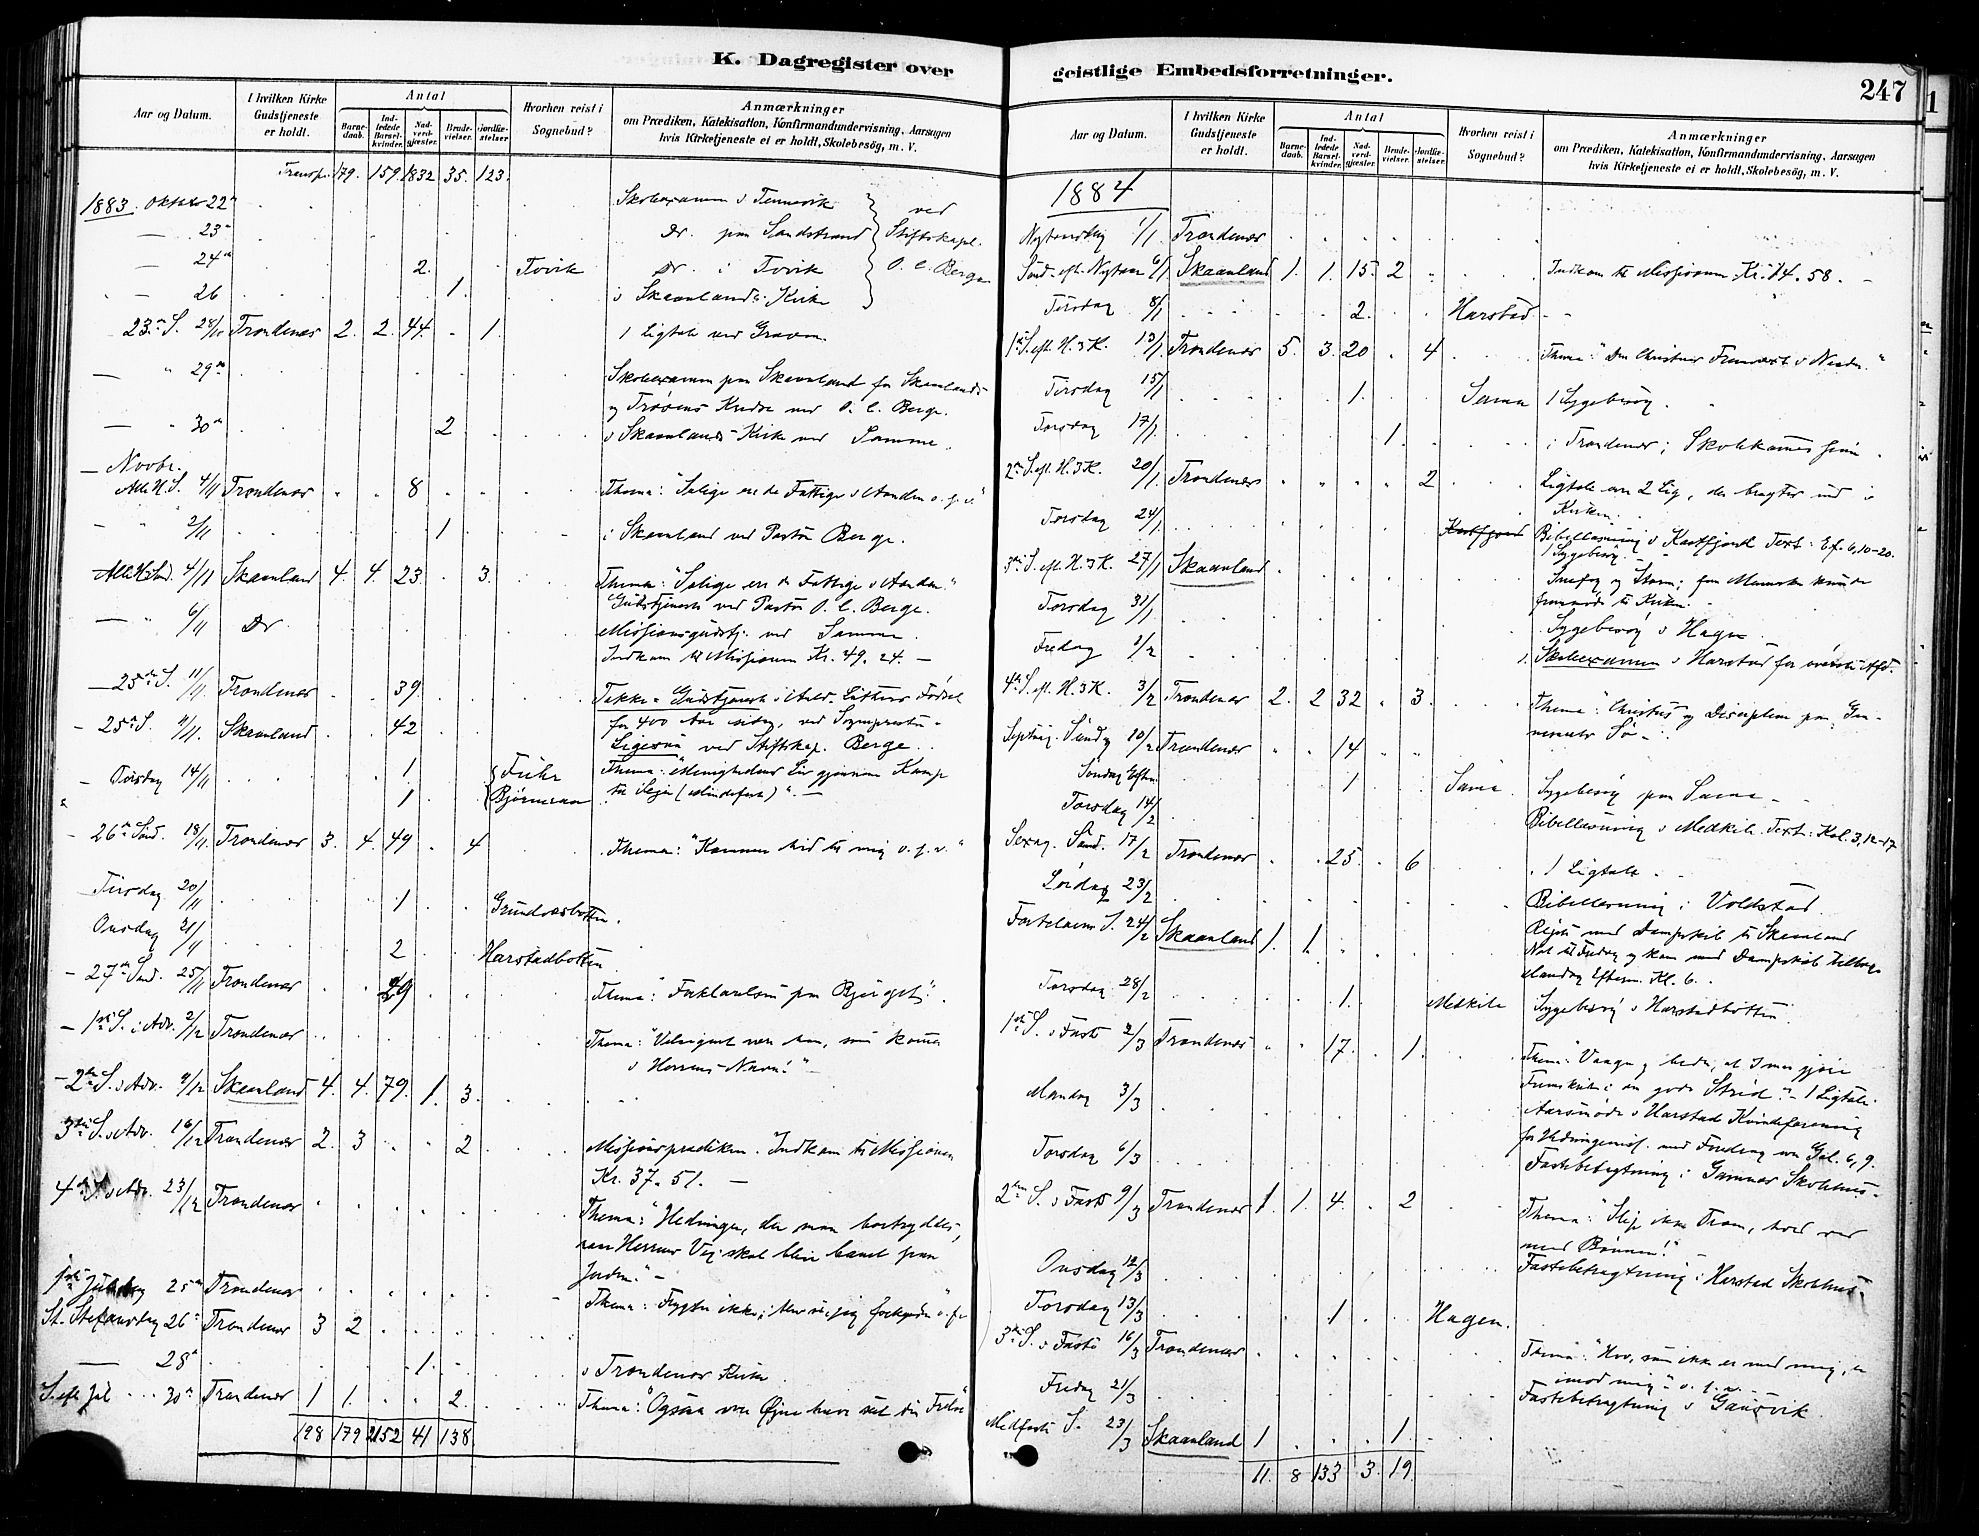 K. Dagregister over
Aar og Datum.
I hvilken Kirke Gudstjeneste er holdt.
Antal
Barnedaab.
Indledede Barselkvinder.
Nadverdgjæster.
Brudevielser.
Jordfæstelser.
Hvorhen reist i Sognebud?
Anmærkninger
om Prædiken, Katekisation, Konfirmandundervisning, Aarsagen
hvis Kirketjeneste ei er holdt, Skolebesög, m. V.
Transp. 179. 159. 1832 35. 123.
1883. Oktbr 22 Skoleexamen i Tennevik
ved
— 23 Do. paa Sandstrand Stiftskapl.
— 24 2. Tovik Do. i Tovik O. C. Berge
— 26 1. i Skaanlands Kirke
23 S. 28/10 Trondenæs 2. 2. 44. 1. 1 Ligtale ved Graven
— 29 Skoleexamen paa Skaanland for Skaanlands
og Kredse ved O. C. Berge.
— 30 2 i Skaanlands Kirke ved Samme.
— Novbr.
Alle H. S. 4/11 Trondenæs 8 Thema: "Salige ere de Fattige i Aanden o. s. v."
2/11 1 i Skaanland ved Pastor Berge.
4/11 Skaanland 4. 4. 23. 3. Thema: "Salige ere de Fattige i Aanden."
Gudstjeneste ved Pastor O. C. Berge.
— 6/11 Do Missionsgudstj. ved Samme.
Indkom til Missionen Kr. 49. 24. —
— 25 S. 11/11 Trondenæs 39. Takke-Gudstjeneste i Anl. Luthers Fødsel
- 25 S. 11/11. Skaanland 42 for 400 Aar siden, ved Sognepresten -
Ligesaa ved Stiftskap. Berge.
14/11 1 Thema: "Menighedens Liv gjennem Kamp
1 til Seir
- 26 Sønd. 18/11 Trondenæs 3. 4. 49 4 Thema: "Kommer hid til mig o. s. v."
Tirsdag 20/11 1
Onsdag 21/11 2 Harstadbotten
- 27 Sønd. 25/11 Trondenæs 29 Thema: paa Bjerget".
- 1 S. i Adv. 2/12 Trondenæs Thema: "Velsignet være han, som kommer
i Herrens Navn!"
- 2 S. i Adv. 9/12 Skaanland 4. 4. 79. 1. 3.
3 S. i Adv. 16/12 Trondenæs 2. 3 2 Missionsprædiken. Indkom til Missionen
Kr. 37. 51. —
4 S. i Adv. 23/12 Trondenæs Thema: "Hedningen, der maa
Herrens Vei skal blive banet paa
Jorden." -
1 Juledag 25 Trondenæs Thema: Frygter ikke;
St. Stefansdag 26 Trondenæs 3 2
— 28 1. i Trondenæs Kirke
S. eft. Jul 30 Trondenæs 1 1. 2. Thema: "Ogsaa vore Øjne have seet din Frelse"
198 179 2152 41 138

geistlige Embedsforretninger.
247
Aar og Datum.
I hvilken Kirke Gudstjeneste er holdt.
Antal
Barnedaab.
Indledede Barselkvinder.
Nadverdgjæster.
Brudevielser.
Jordfæstelser.
Hvorhen reist i Sognebud?
Anmærkninger
om Prædiken, Katekisation, Konfirmandundervisning, Aarsagen
hvis Kirketjeneste ei er holdt, Skolebesög, m. V.
1884
Nytaarsdag 1/1. Trondenæs
Sønd. eft. Nytaar 6/1 Skaanland 1. 1. 15. 2 Indkom til Missionen Kr. 14. 58. —
Tirsdag 8/1 2. Harstad
1 S. eft. H. 3 K. 13/1. Trondenæs 5. 3. 20 4 Thema:
Tirsdag 15/1 1. Sama 1 Sygebesøg.
Torsdag 17/1. 1. i Trondenæs;
2 S. eft. H. 3 K. 20/1. Trondenæs 2 Ligtale over 2 Lig, der bragtes ind i
Kirken.
Torsdag 24/1. Kastfjord Bibellæsning i Kastfjord Text: Ef. 6, 10-20.
1 Sygebesøg.
3 S. eft. H. 3 K. 27/1 Skaanland Snefog og Storm; faa Mennesker kunde
fremmøde til Kirken.
Torsdag 31/1 Sygebesøg i Hagen
Fredag 1/2 Skoleexamen i Harstad for øverste Afd.
4 S. eft. H. 3 K. 3/2 Trondenæs 2. 2 32 3. Thema: "Christus og Disciplene paa Gen-
nesareth Sø -
Septuag. Søndag 10/2 Trondenæs 14
Søndag Efterm. 1 Sama Sygebesøg paa Sama -
Torsdag 14/2 Bibellæsning i Medkile. Text: Kol. 3, 12-17
Sexag. Sønd. 17/2 Trondenæs 25. 6 1 Ligtale.
Lørdag 23/2 Bibellæsning i Voldstad
Fastelavns S. 24/2 Skaanland 1. 1. Reiste med Dampskib til Skaanland
Nat til Fredag og kom med Dampskib tilbage
Mandag Efterm. Kl. 6.
Torsdag 28/2 1. Medkile Sygebesøg i Harstadbotten.
1 S. i Faste 2/3 Trondenæs 17. 1. Thema: "Vaager og beder, at I maa gjøre
i den gode Strid." - 1 Ligtale.
Mandag 3/3 Aarsmøde i Harstad Kvindeforening
for Hedningemiss. med Foredrag over Gal. 6, 9.
Torsdag 6/3 Fastebetragtning i Skolehus.
2 S. i Faste 9/3 Trondenæs 1. 1. 4. 2 Thema: "Slip ikke Troen, hold ved
med Bønnen!" -
Onsdag 12/3 Fastebetragtning i Harstad Skolehus.
Torsdag 13/3 1 Hagen.
3 S. i Faste 16/3 Trondenæs Thema: "Hvo, som ikke er med mig, er
imod mig" o. s. v.
Fredag 21/3 Fastebetragtning i Gausvik
Midfaste S. 23/3 Skaanland 1 1.
11. 8 133 3. 19.